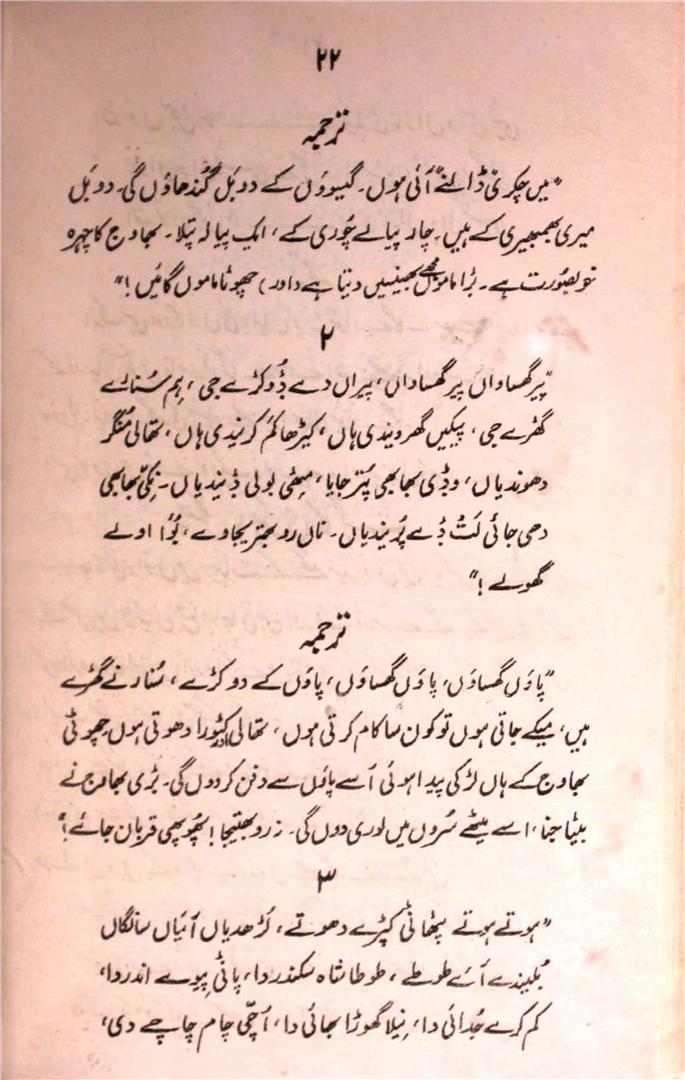 ۲۲
ترجمہ
"میں چکری ڈالنے آئی ہوں۔ گیسوؤں کے دو بَل گُندھاؤں گی۔ دو بَل
میری بھمبھیری کے ہیں۔ چار پیالے چُوری کے، ایک پیالہ پتلا۔ بھاوج کا چہرہ
خوبصُورت ہے۔ بڑا ماموں مجھے بھینسیں دیتا ہے (اور) چھوٹا ماموں گائیں!"
۲
"پیر گھساواں پیر گھساواں، پیراں دے ڈُوکڑے جی، ہِم سُنارے
گھڑے جی، پیکیں گھر ویندی ہاں، کیڑھا کم کریندی ہاں، تھالی مُنگر
دھوندیاں، وڈی بھابھی پُتر جایا، مِٹھی بولی ڈیندیاں۔ نِکی بھابھی
دھی جائی لَتُ ڈے پُریندیاں۔ ناں رو بھتریجاوے، بُوا اولے
گھولے!"
ترجمہ
"پاؤں گھساؤں، پاؤں گھساؤں، پاؤں کے دو کڑے، سُنار نے گھڑے
ہیں، میکے جاتی ہوں تو کون سا کام کرتی ہوں، تھالی اور کٹورا دھوتی ہوں چھوٹی
بھاوج کے ہاں لڑکی پیدا ہوئی اُسے پاؤں سے دفن کر دوں گی۔ بڑی بھاوج نے
بیٹا جنا، اسے میٹھے سُروں میں لوری دوں گی۔ نہ رو بھتیجا! پھُوپھی قربان جائے!"
۳
"ہوتے ہوتے پٹھانی کپڑے دھوتے، لَڑھدیاں آئیاں سانگاں
بُلیندے آئے طوطے، طوطا شاہ سکندر دا، پانی پیوے اندر دا،
کم کرے جُدائی دا، نِیلا گھوڑا بھائی دا، اُچّی چام چاچے دی،